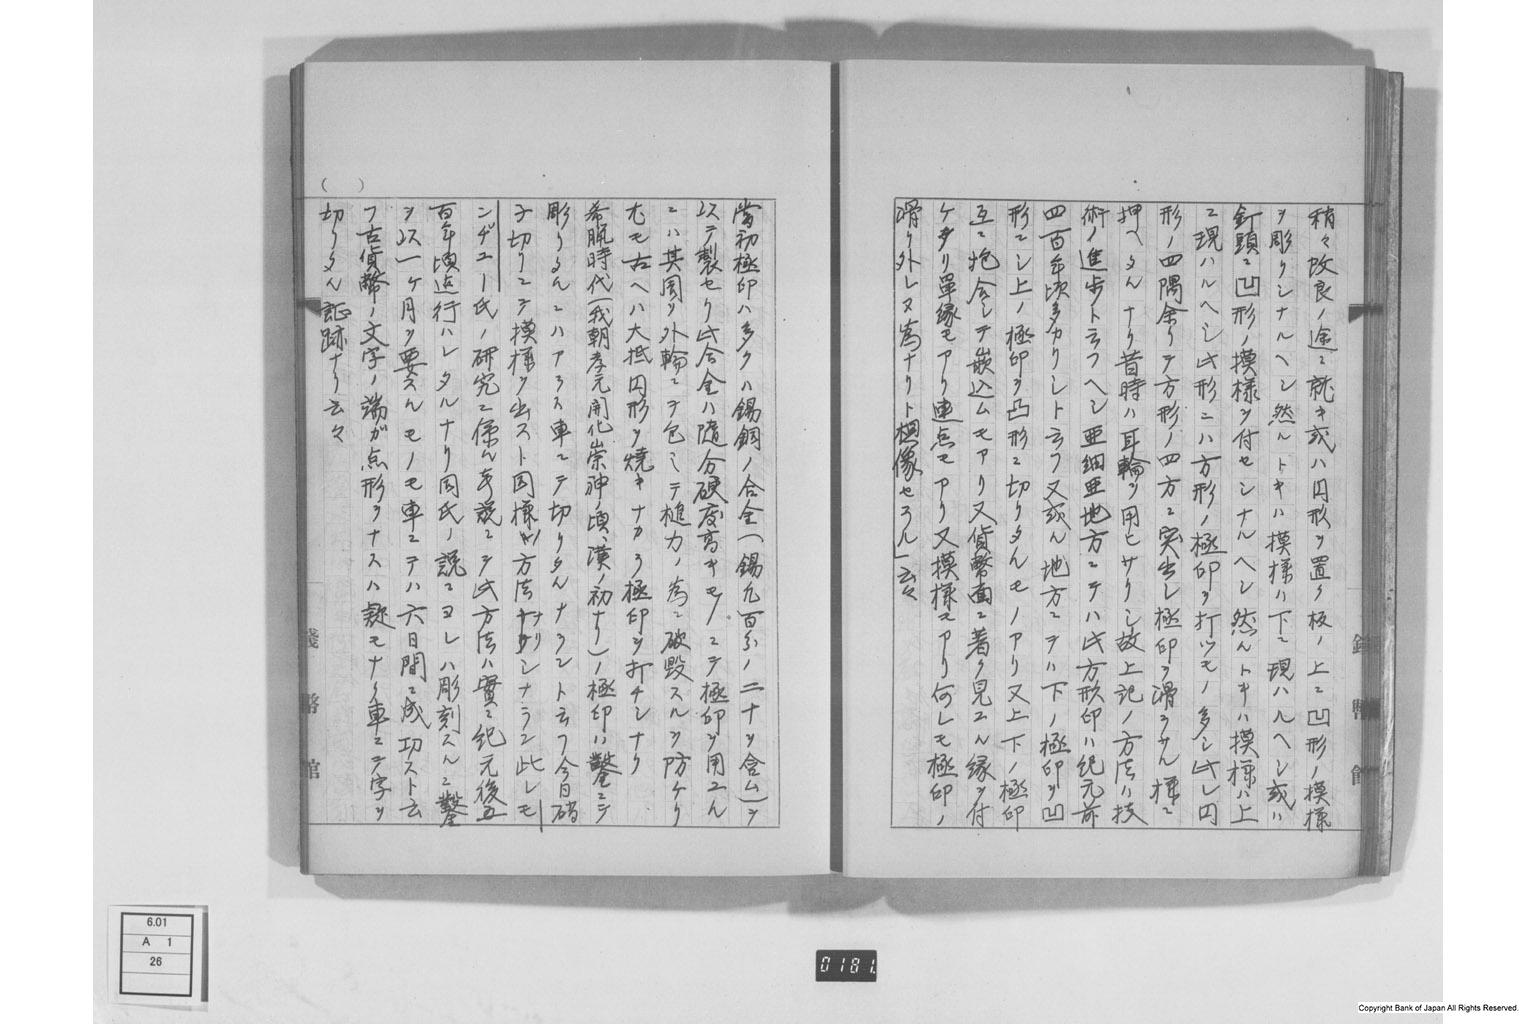 稍々改良ノ途ニ就キ或ハ円形ヲ置ク板ノ上ニ凹形ノ模様
ヲ彫クシナルヘシ然ルトキハ模様ハ下ニ現ハルヘシ或ハ
釘頭ニ凹形ノ模様ヲ付セシナルヘシ然ルトキハ模様ハ上
ニ現ハルヘシ此形ニハ方形ノ極印ヲ打ツモノ多シ此レ円
形ノ四隅余リテ方形ノ四方ニ突出シ極印ヲ滑ラサル様ニ
押ヘタルナリ昔時ハ耳輪ヲ用ヒサリシ故上記ノ方法ハ技
術ノ進歩ト云フヘシ亜細亜地方ニテハ此方形印ハ紀元前
四百年頃多カリシト云フ又或ル地方ニテハ下ノ極印ヲ凹
形ニシ上ノ極印ヲ凸形ニ切リタルモノアリ又上下ノ極印
互ニ抱合シテ嵌込ムモアリ又貨幣面ニ著ク見エル縁ヲ付
ケタリ單縁モアリ連点モアリ又模様モアリ何レモ極印ノ
滑リ外レヌ為ナリト想像セラル」云々
當初極印ハ多クハ錫銅ノ合金(錫凡百分ノ二十ヲ含ム)ヲ
以テ製セリ此合金ハ随分硬度高キモノニテ極印ヲ用ユル
ニハ其周ヲ外輪ニテ包ミテ槌力ノ為ニ破毀スルヲ防ケリ
尤モ古ヘハ大抵円形ヲ焼キナカラ極印ヲ打チシナリ
希臘時代(我朝孝元開化崇神ノ頃、漢ノ初ナリ)ノ極印ハ鑿ニテ
彫リタルニハアラス車ニテ切リタルナラント云フ今日硝
子切リニテ模様ヲ出スト同様ノ方法ナリシナラン此レモ
ンヂユー氏ノ研究ニ係ル新説ニシテ此方法ハ實ニ紀元後五
百年頃迄行ハレタルナリ同氏ノ説ニヨレハ彫刻スルニ鑿
ヲ以一ヶ月ヲ要スルモノモ車ニテハ六日間ニ成功スト云
フ古貨幣ノ文字ノ端ガ点形ヲナスハ疑モナク車ニテ字ヲ
切リタル証跡ナリ云々
( )
錢幣館
錢幣館
6.01
A 1
26
0181
Copyright Bank of Japan All Rights Reserved.